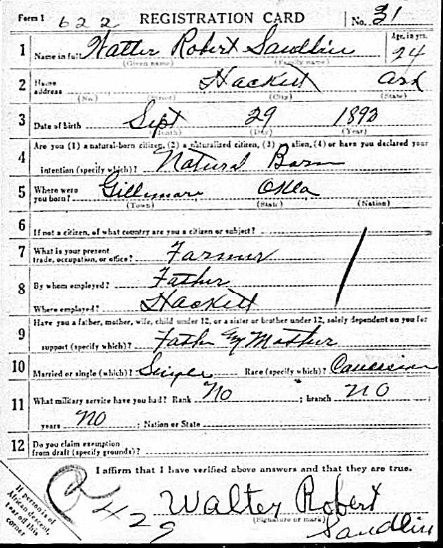 Form 1 622 REGISTRATION CARD No. 31
1 Name in full Walter Robert Sandlin Age, in yrs. 24
(Given name) (Family name)
2 Home address Hackett Ark
(No.) (Street) (City) (State)
3 Date of birth Sept 29 1892
(Month) (Day) (Year)
4 Are you (1) a natural-born citizen, (2) a naturalized citizen, (3) an alien, (4) or have you declared your
intention (specify which)? Natural Born
5 Where were you born? Gillmore Okla
(Town) (State) (Nation)
6 If not a citizen, of what country are you a citizen or subject?
7 What is your present trade, occupation, or office? Farmer
8 By whom employed? Father
Where employed? Hackett
9 Have you a father, mother, wife, child under 12, or a sister or brother under 12, solely dependent on you for
support (specify which)? Father & Mother
10 Married or single (which)? Single Race (specify which)? Caucasian
11 What military service have you had? Rank No ; branch No
years No ; Nation or State
12 Do you claim exemption from draft (specify grounds)?
I affirm that I have verified above answers and that they are true.
Walter Robert
(Signature or mark)
Sandlin
If person is of
African descent,
tear off this
corner
429